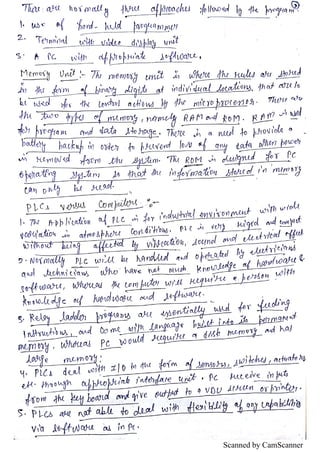 There are normally three approaches followed by the program:
1. use of hand-held programmer
2. Terminal with video display unit
3. A PC with appropriate software.
Memory Unit:- The memory unit is where the rules are stored
in the form of binary digits at individual locations, that are to
be used for the control actions by the microprocessor. There are
the two types of memory, namely RAM and ROM. RAM is used
for program and data storage. There is a need to provide a
battery backup in order to prevent loss of any data when power
is removed from the system. The ROM is designed for PC
operating system so that the information stored in memory
can only be read.
PLCs versus Computers :-
1. The Application of PLC is for industrial environment with wide
variation in atmosphere conditions. PLC is very rigid and compact
without being affected by vibration, sound and electrical effect
2. Normally PLC will be handled and operated by electricians
and technicians who have not much knowledge of hardware &
software, whereas the computer will require a person with
knowledge of hardware and software.
3. Relay ladder programs are essentially used for feeding
Instructions, and come with language built into its permanent
memory. Whereas PC would require a disk memory and has
large memory.
4. PLCs deal with I/O in the form of sensors, switches, actuators
etc. through appropriate interface unit. PC receive inputs
from the key board and give output to a VDU screen or printer.
5. PLCs are not able to deal with flexibility of any capability
via software as in PC.
Scanned by CamScanner